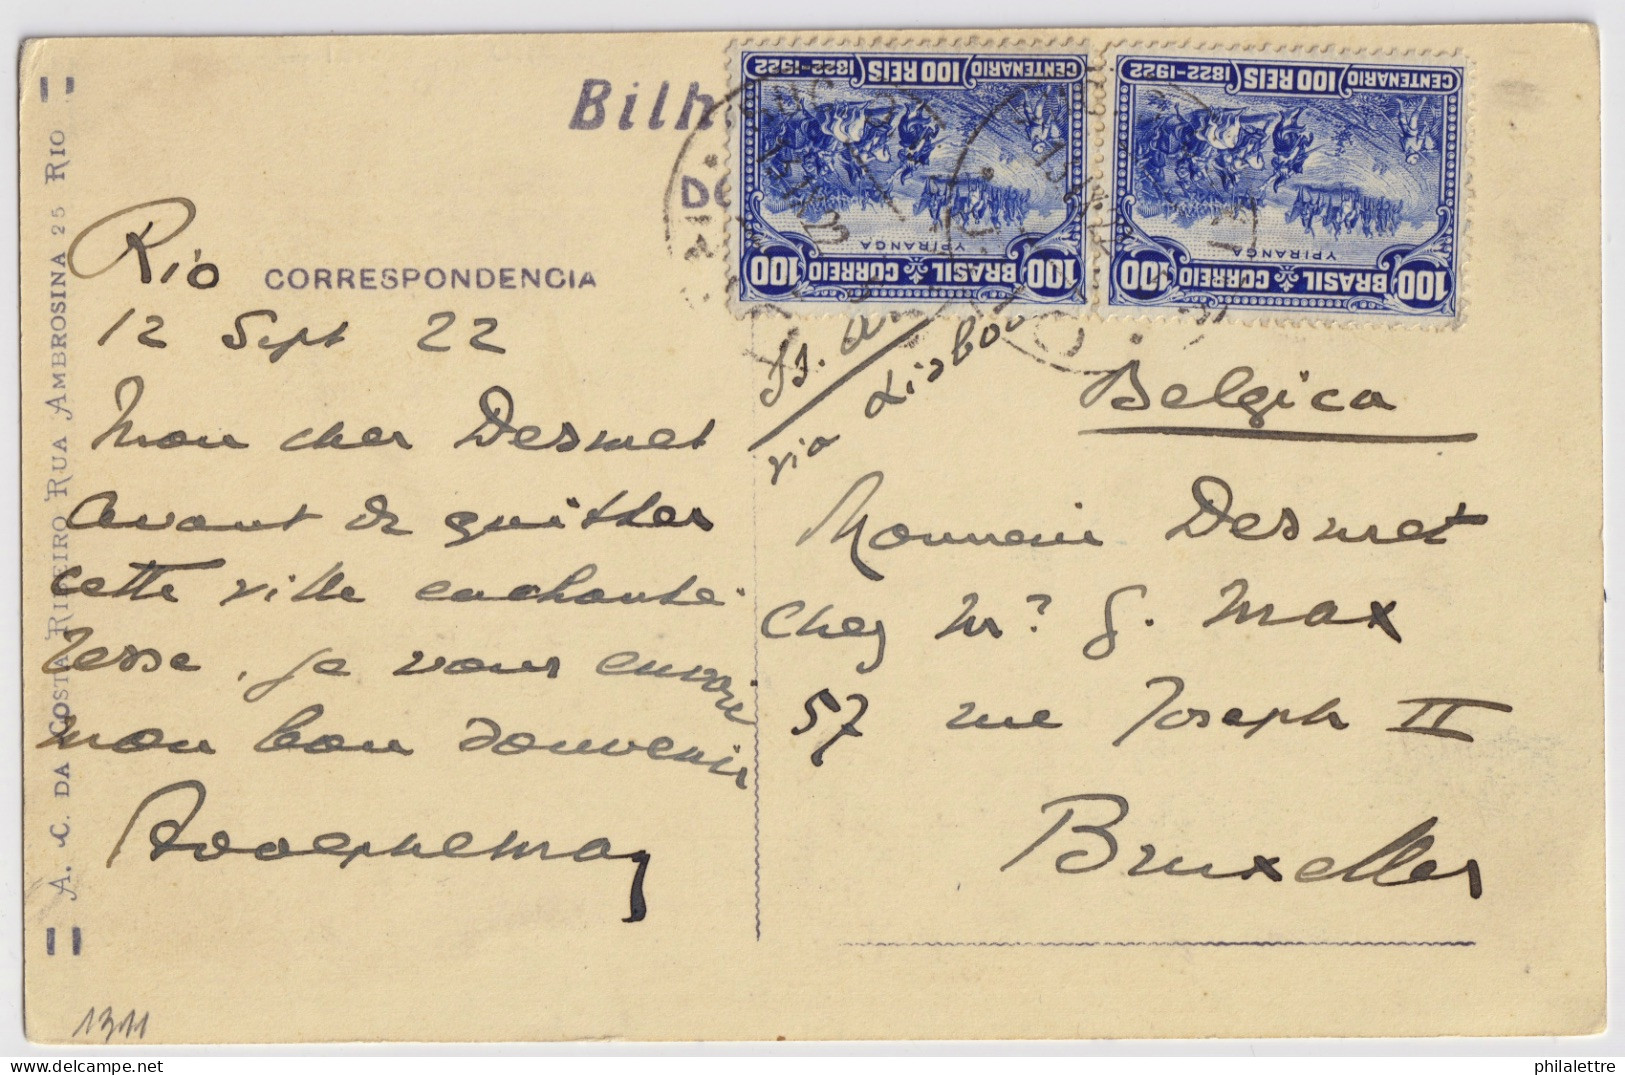 Bilh
CORRESPONDENCIA
A. C. DA COSTA RIBEIRO RUA AMBROSINA 25 RIO
Rio
12 Sept 22
Mon cher Desmet
avant de quitter
cette ville enchante-
resse, je vous envoie
mon bon souvenir
1822-1922 CENTENARIO
100 REIS
YPIRANGA
100 BRASIL CORREIO 100
1822-1922 CENTENARIO
100 REIS
YPIRANGA
100 BRASIL CORREIO 100
via Lisboa
Belgica
Monsieur Desmet
chez Mr. G. Max
57 rue Joseph II
Bruxelles
1311
philalettre